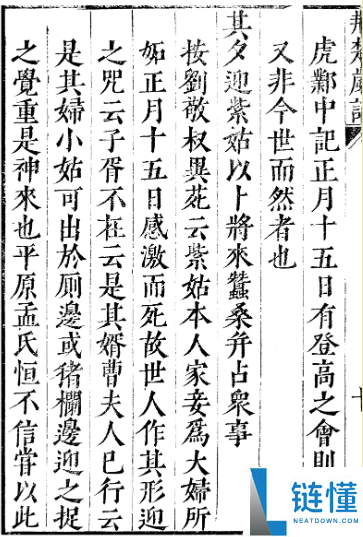 荆楚歲記
虎鄴中記正月十五日有登高之會則
又非今世而然者也
其夕迎紫姑以卜將來蠶桑并占衆事
按劉敬叔異苑云紫姑本人家妾爲大婦所
妬正月十五日感激而死故世人作其形迎
之咒云子胥不在云是其婿曹夫人已行云
是其婦小姑可出於厕邊或猪欄邊迎之捉
之覺重是神來也平原孟氏恒不信甞以此
链懂
NEATDOWN.COM